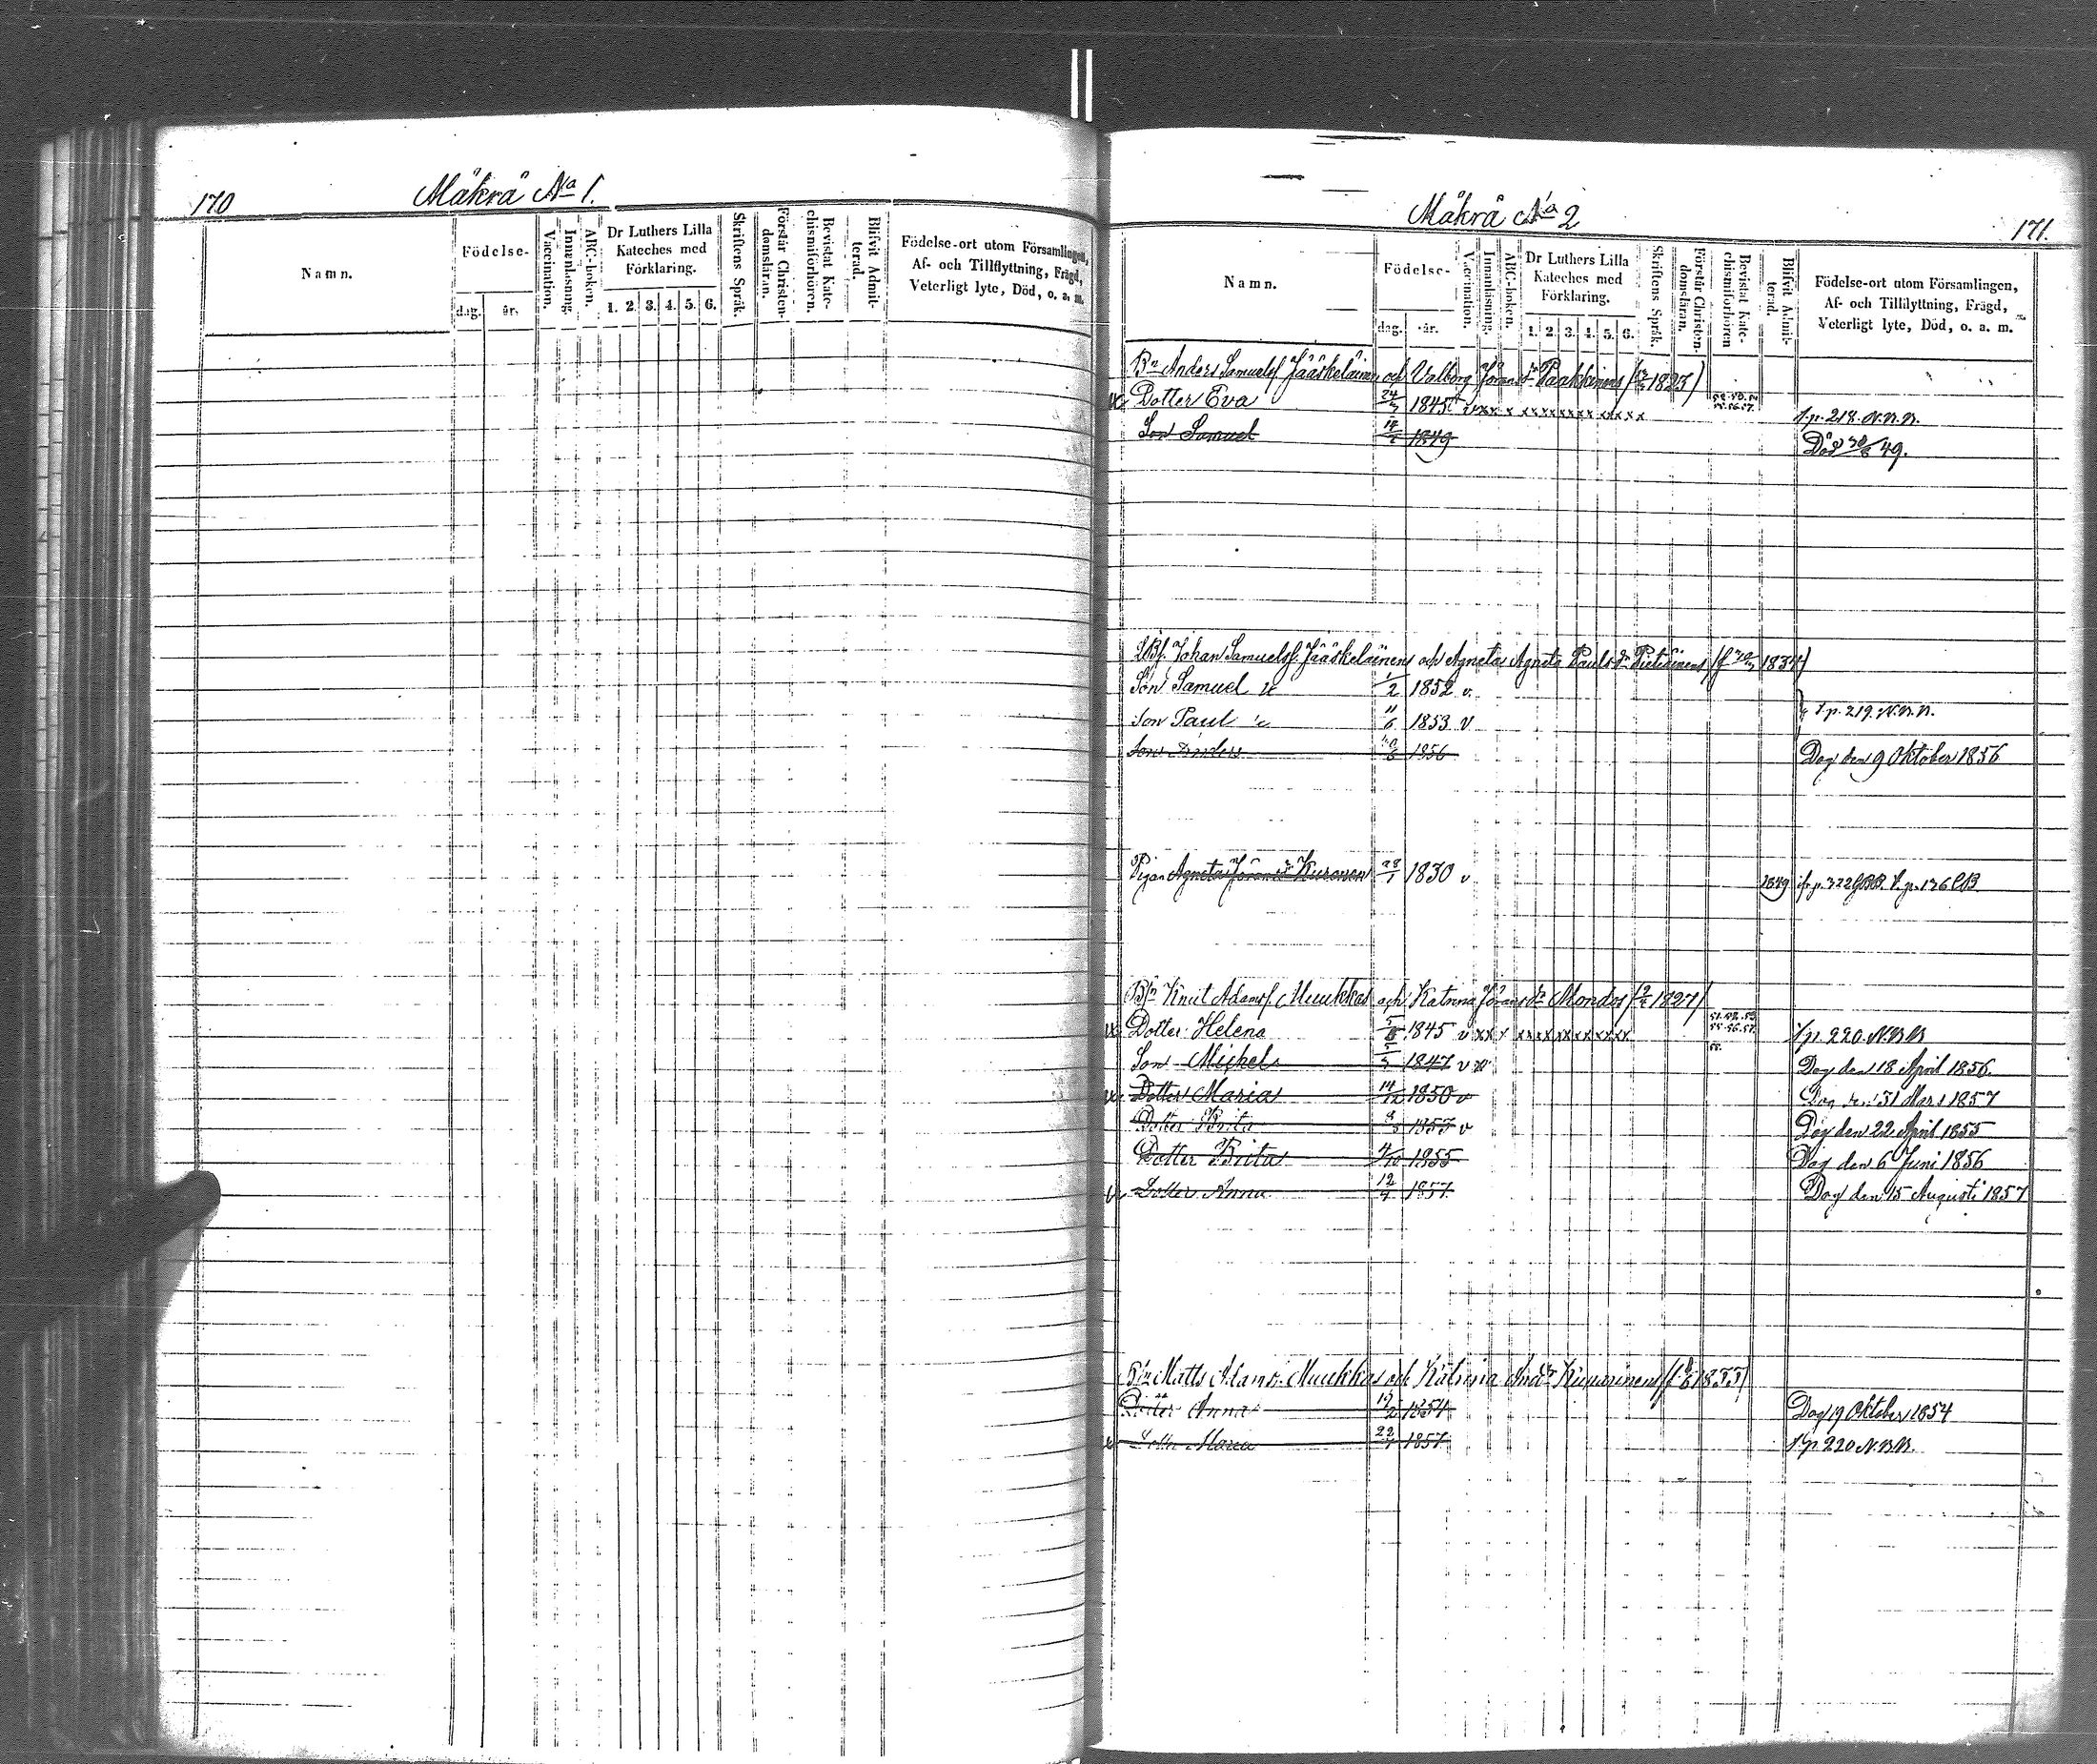 170
Mäkrä No 1.
Namn.
Födelse-
dag.
år.
Vaccination.
Innanläsning.
ABC-boken.
Dr Luthers Lilla
Kateches med
Förklaring.
1. 2. 3. 4. 5. 6.
Skriftens Språk.
Förstår Christen-
domsläran.
Bevistat Kate-
chismiförhören.
Blifvit Admit-
terad.
Födelse-ort utom Församlingen,
Af- och Tillflyttning, Frägd,
Veterligt lyte, Död, o. a. m.
Mäkrä No 2
171.
Namn.
Födelse-
dag.
år.
Vaccination.
Innanläsning.
ABC-boken.
Dr Luthers Lilla
Kateches med
Förklaring.
1. 2. 3. 4. 5. 6.
Skriftens Språk.
Förstår Christen-
domsläran.
Bevistat Kate-
chismiförhören
Blifvit Admit-
terad.
Födelse-ort utom Församlingen,
Af- och Tillflyttning, Frägd,
Veterligt lyte, Död, o. a. m.
Bn Anders Samuelsf Jääskeläinen och Valborg Jöransdr Paakkinens 1823)
Dotter Eva 24 1845 v x x x x x x x x x x x x p. 218. N.B.B.
Son Samuel 1849 Död 30/6 49.
Johan Samuelsf. Jääskeläinens och Agnetas Agneta Paulsdr Pietiäinens 1831)
Son Samuel 1/2 1852 v.
Son Paul 11/6 1853 v p. 219. N.B.B.
Son 1856 Dog den 9 Oktober 1856
Pigan Agneta Jöransdr Kuronen 28/1 1830 v 1849 p. 322 p. 136
Knut Adamsf. Muukkas och Katrina Jöransdr Mondas 1827)
Dotter Helena 1845 v x x x x x x x x x x x p. 220. N.B.B.
Son Mickel 1847 v Dog den 18 April 1856.
Dotter Maria 14/12 1850 v Dog 31 Mars 1857
Dotter Brita 1853 v Dog den 22 April 1855
Dotter Brita 4/10 1855 Dog den 6 Juni 1856
Dotter Anna 1857 Dog den 15 Augusti 1857
Matts Adams. Muukkas och Katrina 1833)
Dotter Anna 1854 Dog 19 Oktober 1854
Dotter Maria 1857 p. 220 N.B.B.